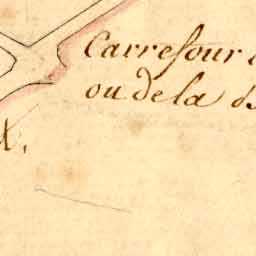 Carrefour
ou de la
x.